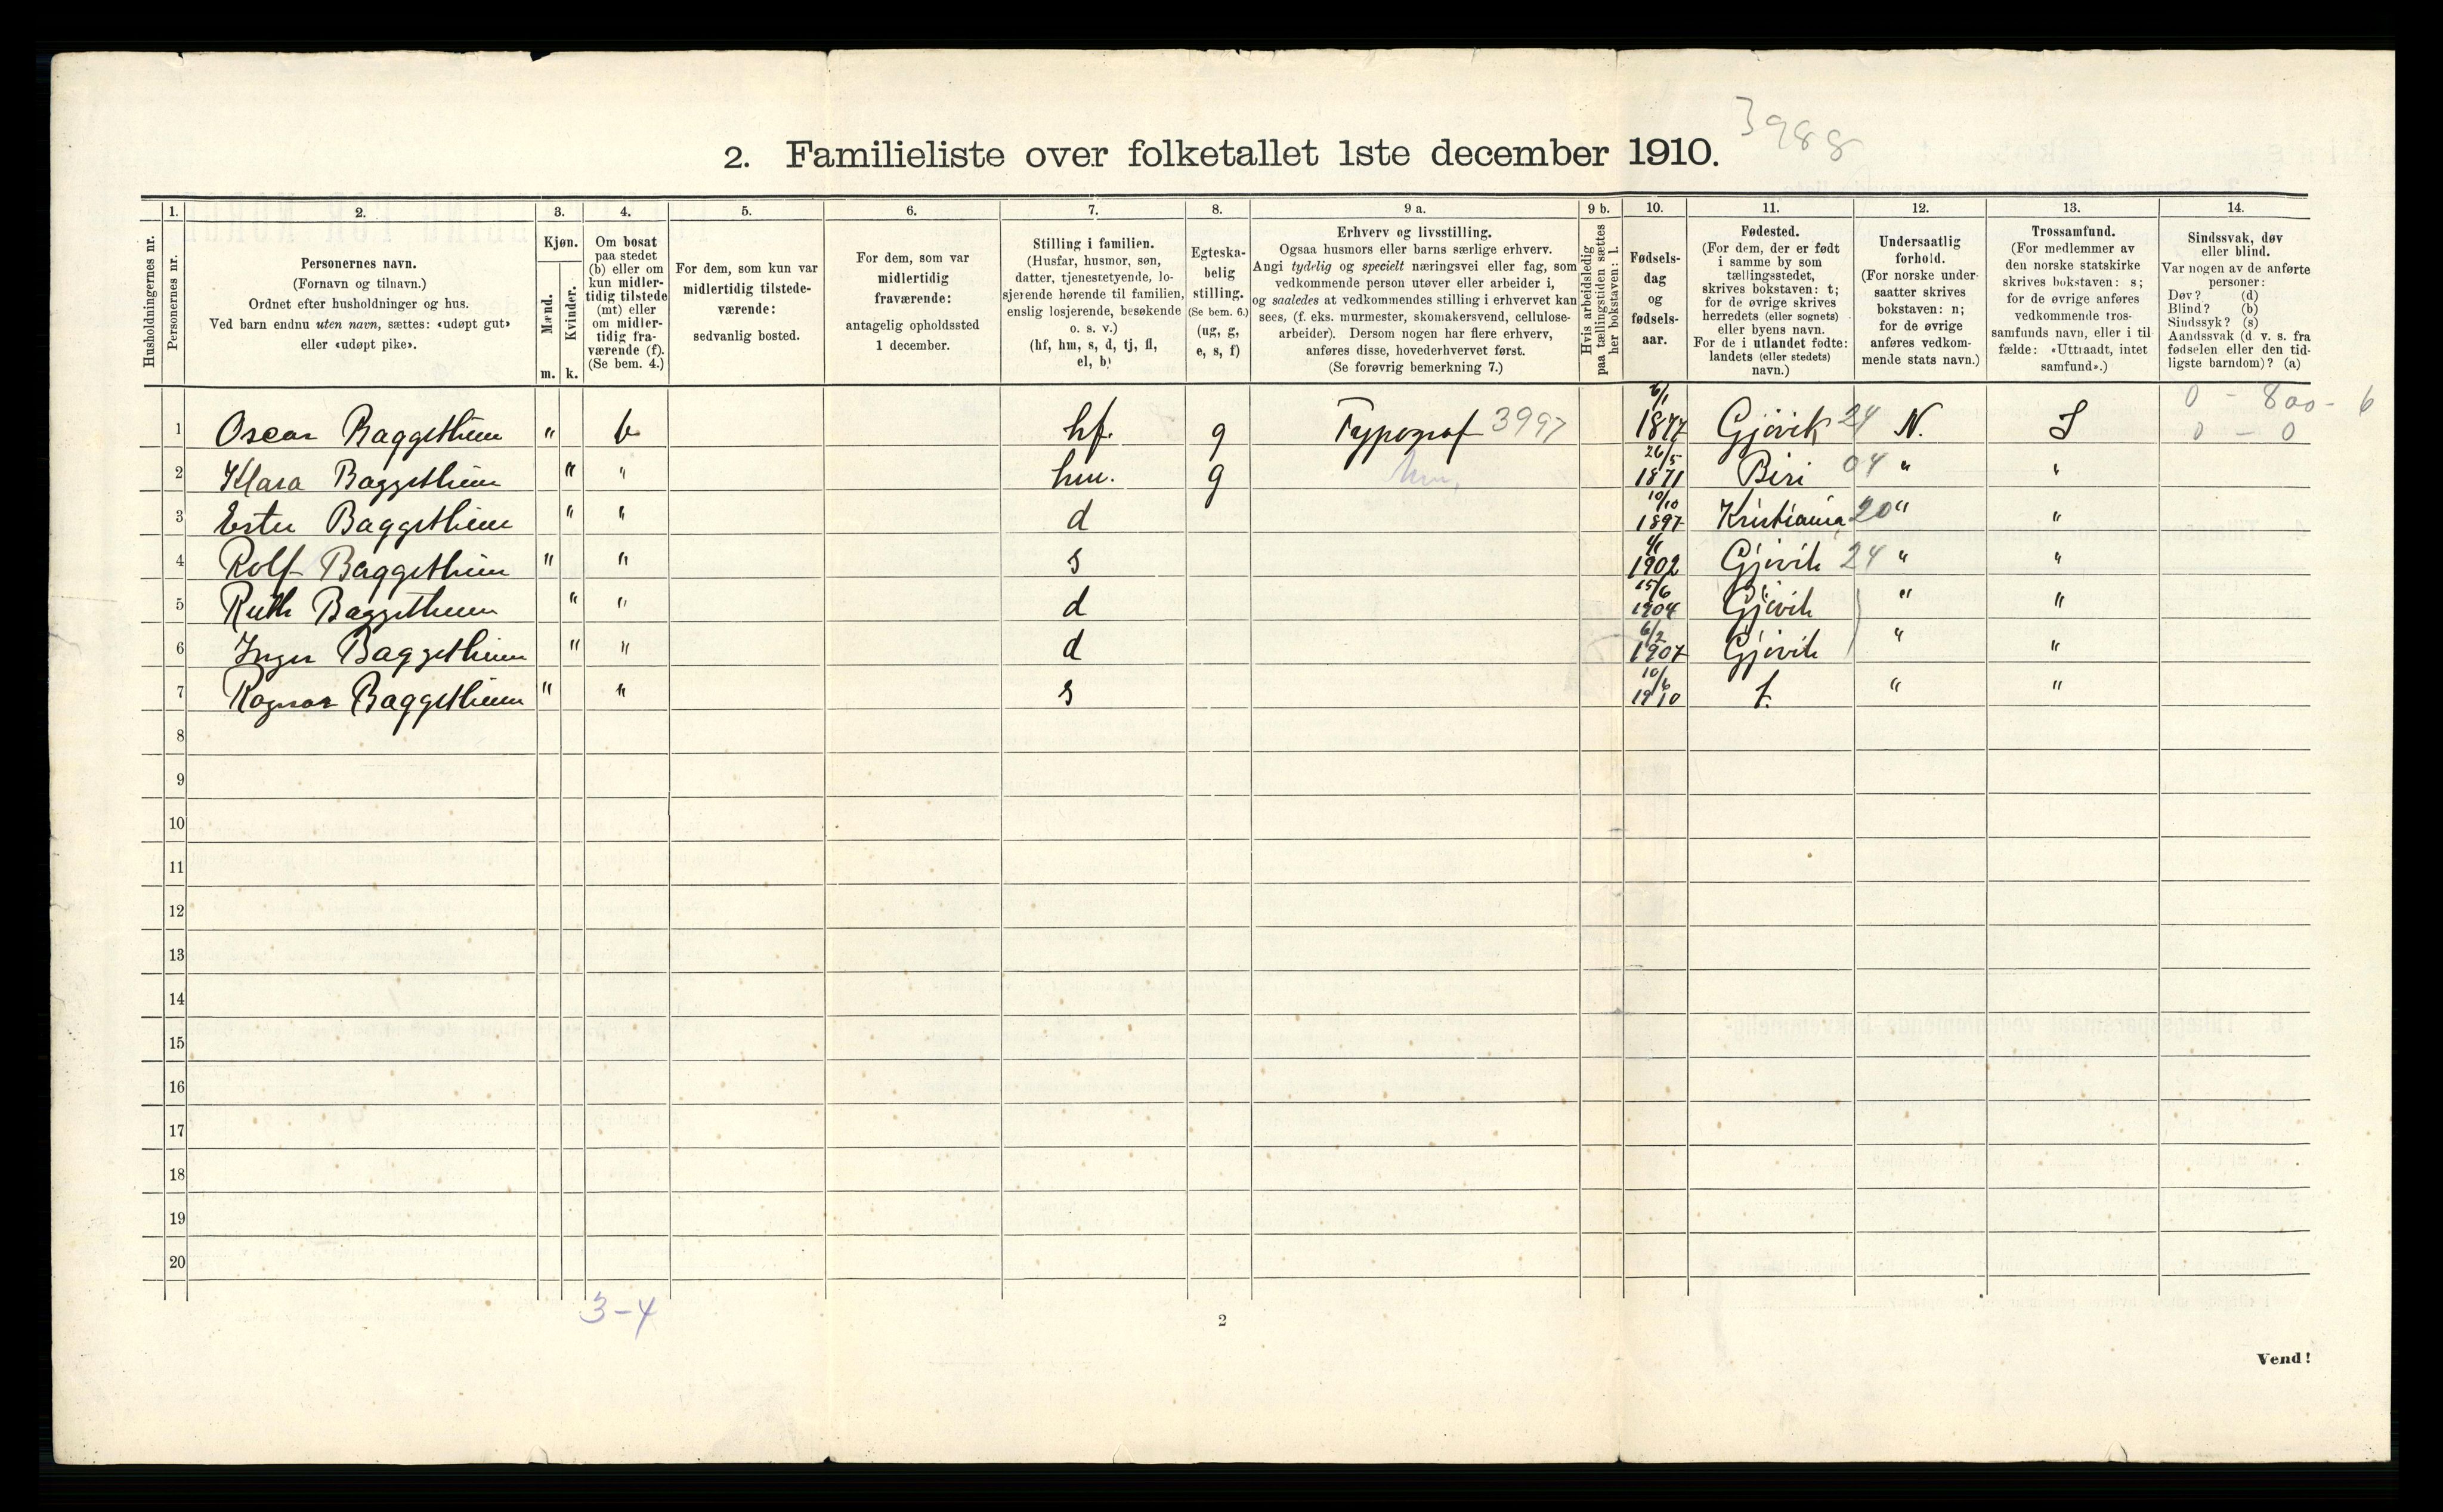 3988
2. Familieliste over folketallet 1ste december 1910.
Husholdningernes nr.
1. 2. 3. 4. 5. 6. 7. 8. 9 a. 9 b. 10. 11. 12. 13. 14.
Personernes nr.
Personernes navn.
(Fornavn og tilnavn.)
Ordnet efter husholdninger og hus.
Ved barn endnu uten navn, sættes: «udøpt gut»
eller «udøpt pike».
Kjøn.
Mænd.
Kvinder.
m. k.
Om bosat
paa stedet
(b) eller om
kun midler-
tidig tilstede
(mt) eller
om midler-
tidig fra-
værende (f).
(Se bem. 4.)
For dem, som kun var
midlertidig tilstede-
værende:
sedvanlig bosted.
For dem, som var
midlertidig
fraværende:
antagelig opholdssted
1 december.
Stilling i familien.
(Husfar, husmor, søn,
datter, tjenestetyende, lo-
sjerende hørende til familien,
enslig losjerende, besøkende
o. s. v.)
(hf, hm, s, d, tj, fl,
el, b)
Egteska-
belig
stilling.
(Se bem. 6.)
(ug, g,
e, s, f)
Erhverv og livsstilling.
Ogsaa husmors eller barns særlige erhverv.
Angi tydelig og specielt næringsvei eller fag, som
vedkommende person utøver eller arbeider i,
og saaledes at vedkommendes stilling i erhvervet kan
sees, (f. eks. murmester, skomakersvend, cellulose-
arbeider). Dersom nogen har flere erhverv,
anføres disse, hovederhvervet først.
(Se forøvrig bemerkning 7.)
Hvis arbeidsledig
paa tællingstiden sættes
her bokstaven: l.
Fødsels-
dag
og
fødsels-
aar.
Fødested.
(For dem, der er født
i samme by som
tællingsstedet,
skrives bokstaven: t;
for de øvrige skrives
herredets (eller sognets)
eller byens navn.
For de i utlandet fødte:
landets (eller stedets)
navn.)
Undersaatlig
forhold.
(For norske under-
saatter skrives
bokstaven: n;
for de øvrige
anføres vedkom-
mende stats navn.)
Trossamfund.
(For medlemmer av
den norske statskirke
skrives bokstaven: s;
for de øvrige anføres
vedkommende tros-
samfunds navn, eller i til-
fælde: «Uttraadt, intet
samfund».)
Sindssvak, døv
eller blind.
Var nogen av de anførte
personer:
Døv? (d)
Blind? (b)
Sindssyk? (s)
Aandssvak (d. v. s. fra
fødselen eller den tid-
ligste barndom)? (a)
0 - 800 - 6
1 Oscar Baggethun " b hf. g Typograf 3997 6/1 1877 Gjøvik 24 N. S 0 - 0
2 Klara Baggethun " " hm. g hm. 26/5 1871 Biri 04 " "
3 Ester Baggethun " " d 10/10 1897 Kristiania 20 " "
4 Rolf Baggethun " " s 4/1 1902 Gjøvik 24 " "
5 Ruth Baggethun " " d 15/6 1904 Gjøvik " "
6 Inger Baggethun " " d 6/2 1907 Gjøvik " "
7 Ragnar Baggethun " " s 10/6 1910 t. " "
8
9
10
11
12
13
14
15
16
17
18
19
20
3-4
2
Vend!